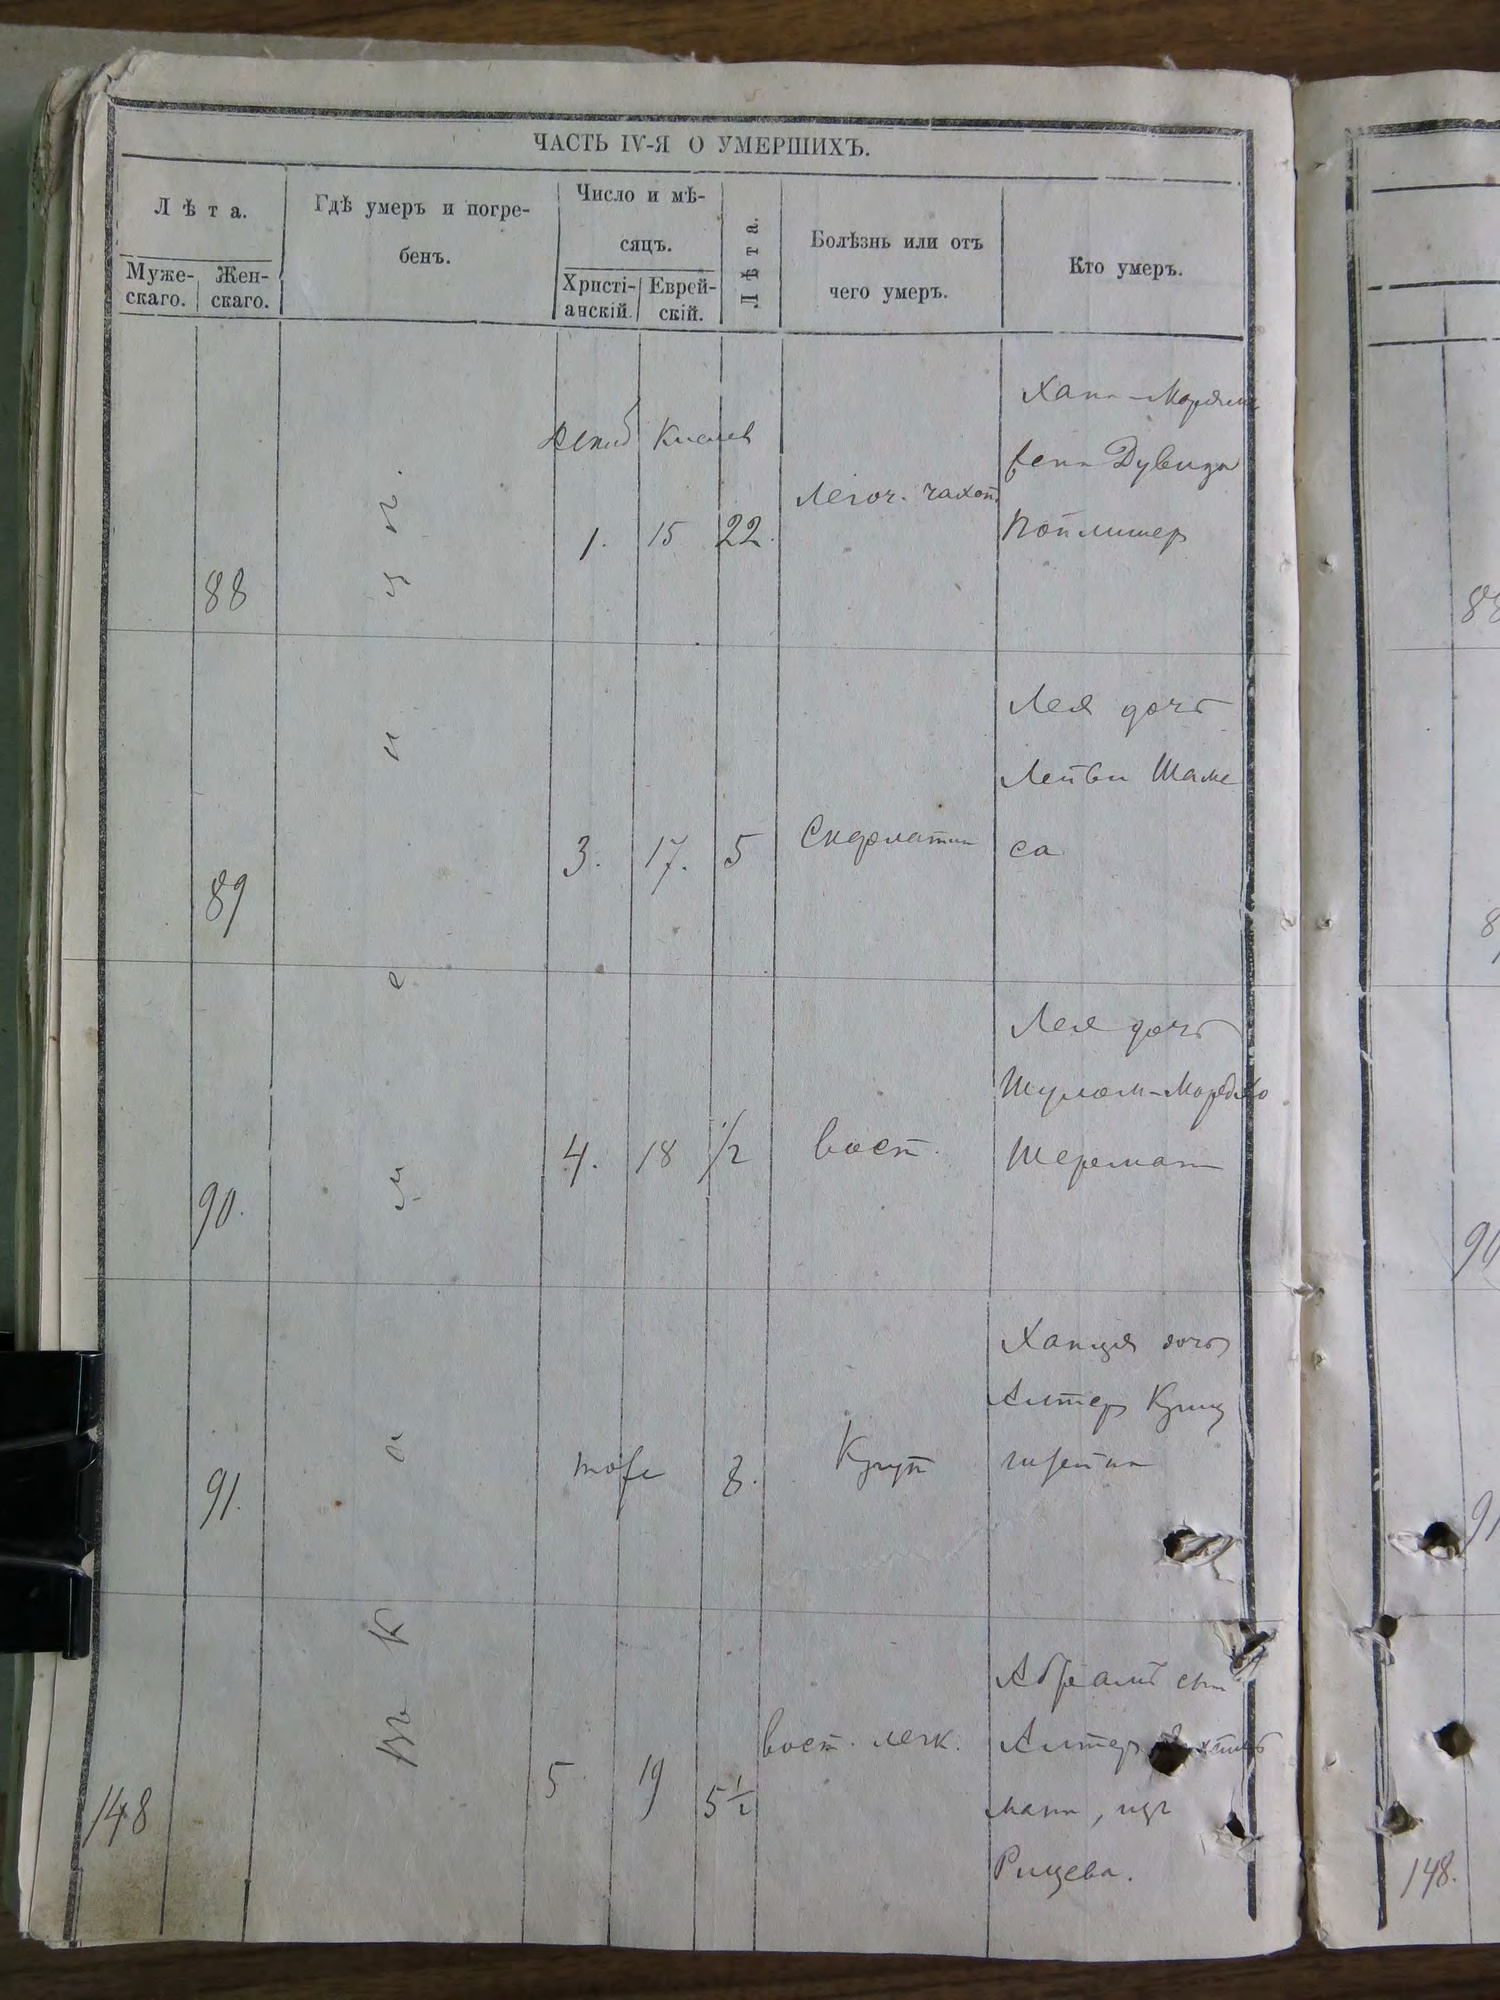 ЧАСТЬ IV-Я О УМЕРШИХЪ.
Лѣта.
Муже-
скаго.
Жен-
скаго.
Гдѣ умеръ и погре-
бенъ.
Число и мѣ-
сяцъ.
Христі-
анскій.
Еврей-
скій.
Лѣта.
Болѣзнь или отъ
чего умеръ.
Кто умеръ.
88
Декаб Кислев
1. 15 22.
Легоч. чахот.
Хана-Мордко
жена Дувида
89
3. 17. 5
Скарлатин
Лея дочь
Лейви Шаме
са
90.
4. 18 1/2
восп.
Лея дочь
Шулом-Мордко
Шерман
91.
тоже 8.
Круп
дочь
Алтер
148
5 19 5 1/2
восп. легк.
Абрамъ сын
Алтер
мана, из
Рищева.
88
90
91
148.